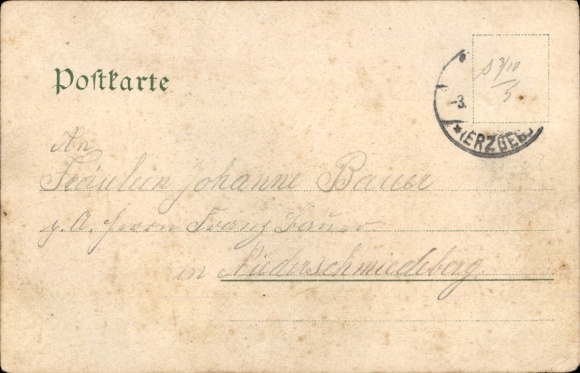 Postkarte
S 3/10
5
-3.
*(ERZGEB.)
An
Fräulein Johanne Bauer
z. A. Herrn Franz Bauer
in Niederschmiedeberg.